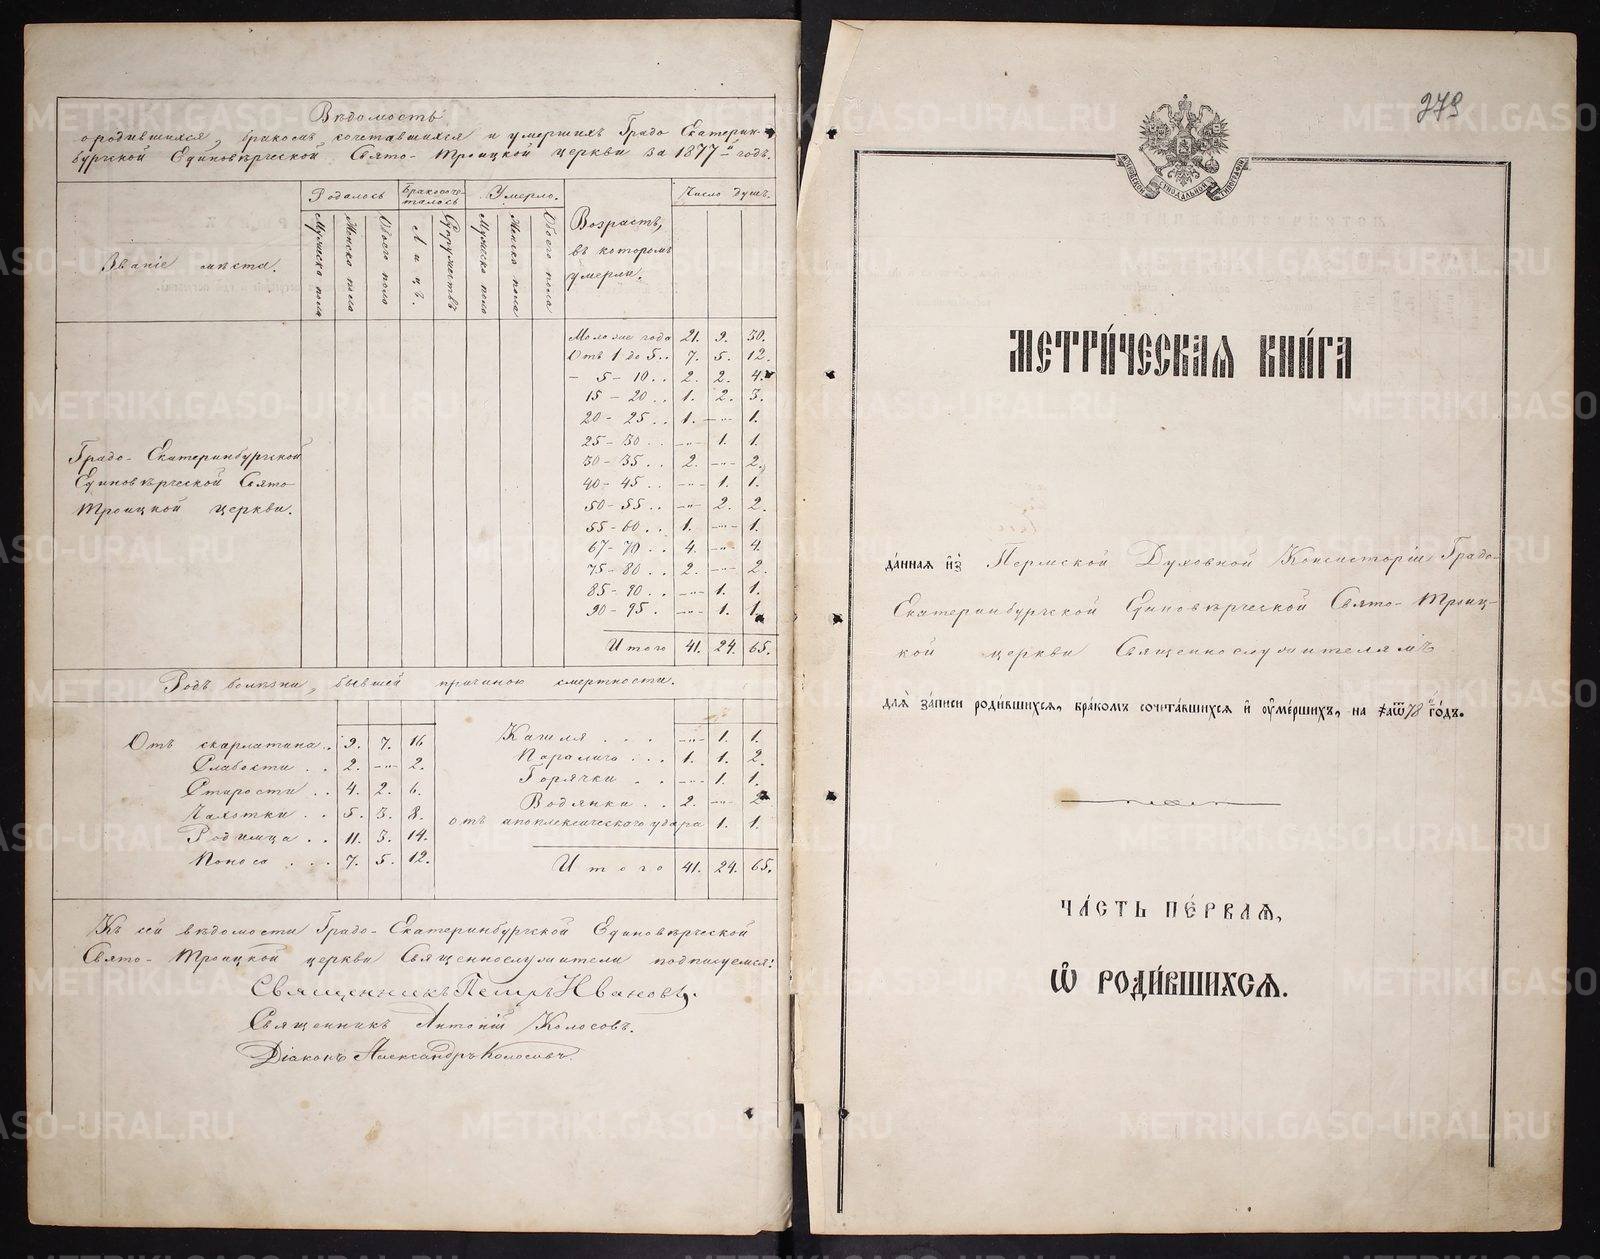 Вѣдомость
о родившихся, бракомъ сочетавшихся и умершихъ Градо Екатерин-
бургской Единовѣрческой Свято-Троицкой церкви за 1877й годъ.
Званіе мѣста.
Родилось
Бракосоче-
талось
Умерло.
Возрастъ,
въ которомъ
умерли.
Число душъ.
Мужска пола
Женска пола
Обоего пола
Лицъ.
Супружествъ
Мужска пола
Женска пола
Обоего пола
Градо-Екатеринбургской
Единовѣрческой Свято
Троицкой церкви.
Моложе года 21. 9. 30.
Отъ 1 до 5.. 7. 5. 12.
- 5 - 10.. 2. 2. 4.
15 - 20.. 1. 2. 3.
20 - 25.. 1. -"- 1.
25 - 30.. -"- 1. 1.
30 - 35.. 2. -"- 2.
40 - 45.. -"- 1. 1.
50 - 55.. -"- 2. 2.
55 - 60.. 1. -"- 1.
67 - 70.. 4. -"- 4.
75 - 80.. 2. -"- 2.
85 - 90.. -"- 1. 1.
90 - 95. -"- 1. 1.
Итого 41. 24. 65.
Родъ болѣзни, бывшей причиною смертности.
Отъ скарлатина.. 9. 7. 16
Слабости.. 2. -"- 2.
Старости.. 4. 2. 6.
Чахотки.. 5. 3. 8.
Родимца.. 11. 3. 14.
Поноса... 7. 5. 12.
Кашля... -"- 1. 1.
Паралича... 1. 1. 2.
Горячки.. -"- 1. 1.
Водянки.. 2. -"- 2.
отъ апоплексическаго удара 1. 1.
Итого 41. 24. 65.
Къ сей вѣдомости Градо-Екатеринбургской Единовѣрческой
Свято-Троицкой церкви Священнослужители подписуемся:
Священникъ Петръ Ивановъ.
Священникъ Антоній Колосовъ.
Діаконъ Александръ Колосовъ.
279
МОСКОВСКОЙ СѴНОДАЛЬНОЙ ТИПОГРАФІИ
МЕТРИ́ЧЕСКАѦ КНИ́ГА
да́ннаѧ и҆з̾ Пермской Духовной Консисторіи Градо-
Екатеринбургской Единовѣрческой Свято-Троиц-
кой церкви Священнослужителямъ
длѧ̀ за́писи роди́вшихсѧ, бра́комъ сочета́вшихсѧ и҆ ᲂу҆ме́ршихъ, на ҂аѿ78й го́дъ.
ЧА́СТЬ ПЕ́РВАѦ,
Ѽ РОДИ́ВШИХСѦ.
METRIKI.GASO-URAL.RU